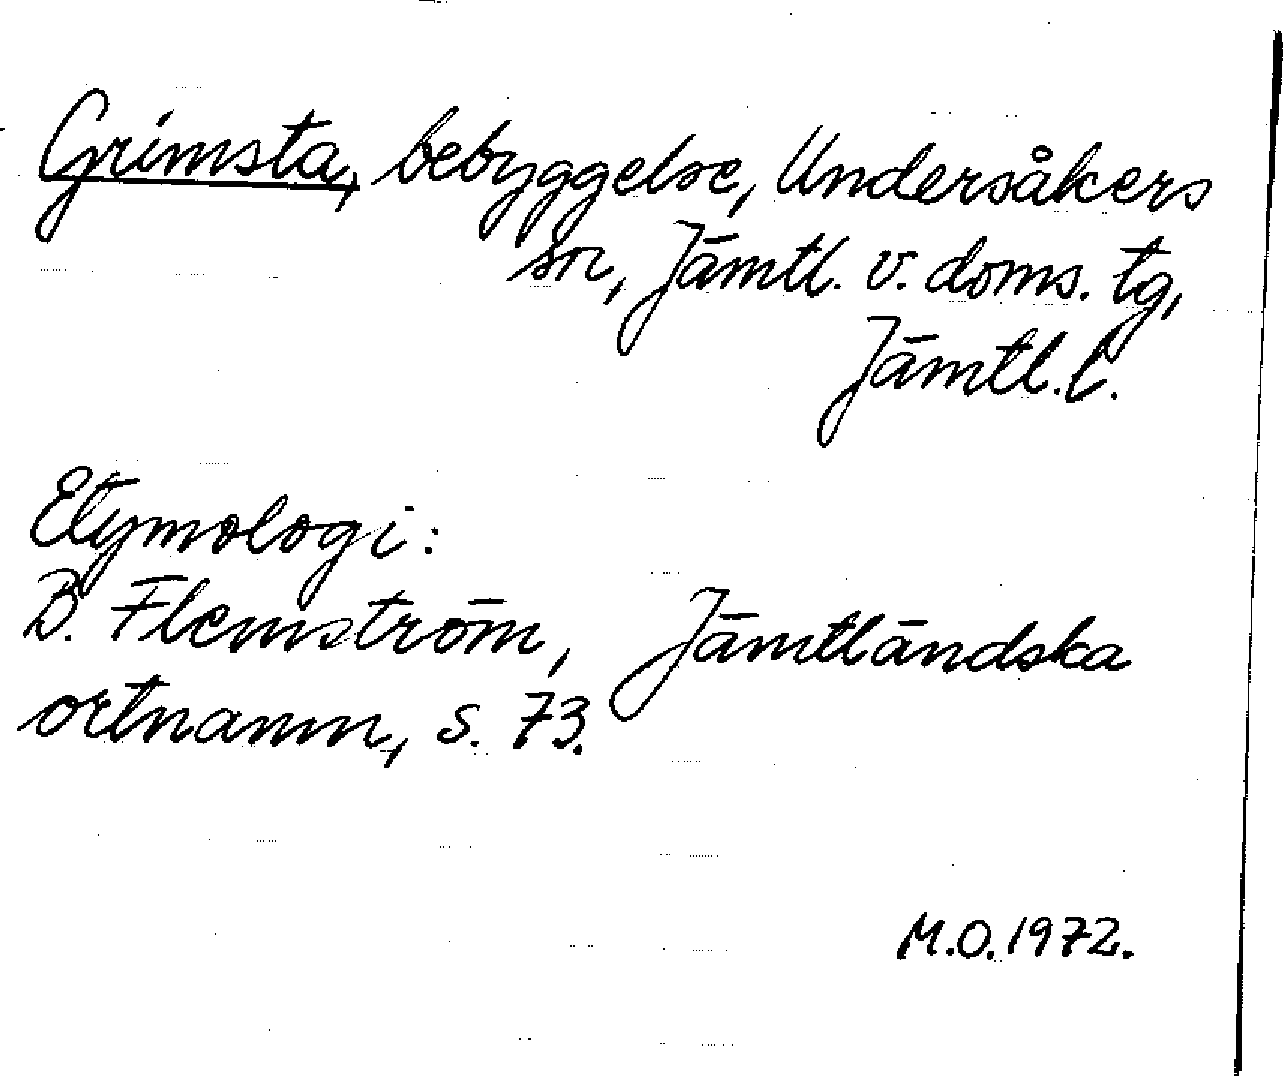 Grimsta, bebyggelse, Undersåkers
sn, Jämtl. v. doms. tg,
Jämtl. l.
Etymologi:
B. Flemström, Jämtländska
ortnamn, s. 73.
M.O. 1972.